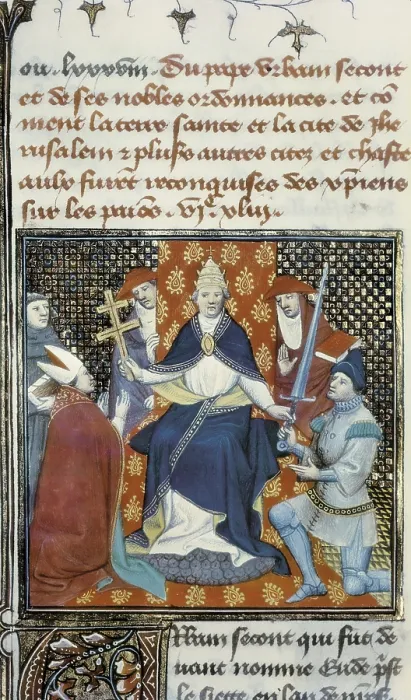 ou. lxxxviii. Du pape Urbain second
et de ses nobles ordonnances. et cō
ment la terre sainte et la cite de Jhe
rusalem z plus's autres citez et chaste
aulx furēt reconquises des xpiens
sur les paiēs. vjᶜ. xluj.
Urbain second qui fut de
uant nomme Eude p̄st
le siege en lan de